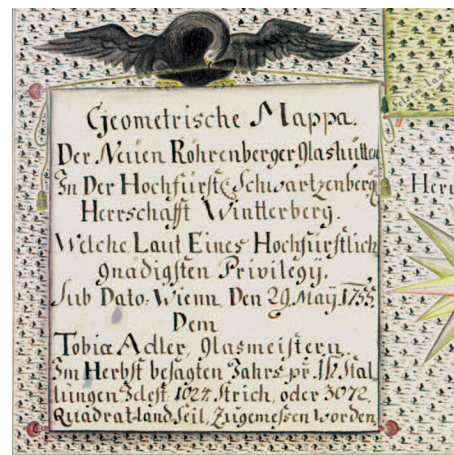 Geometrische Mappa.
Der Neüen Röhrenberger Glashütten
In Der Hochfürstl. Schwartzenberg
Herrschafft Wintterberg.
Welche Laut Eines Hochfürstlich
gnädigsten Privilegÿ.
Sub Dato: Wienn, Den 29. Maÿ. 1755.
Dem
Tobiæ Adler, Glasmeistern,
Im Herbst besagten Jahrs pr.
lungen 1024. Strich, oder 3072.
Quadrat-land Seil, Zugemessen worden